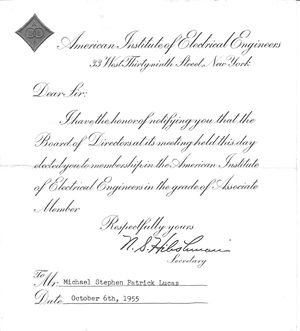 American Institute of Electrical Engineers
33 West Thirtyninth Street, New York
Dear Sir:
I have the honor of notifying you that the
Board of Directors at its meeting held this day
elected you to membership in the American Institute
of Electrical Engineers in the grade of Associate
Member
Respectfully yours
N. S. Hibshman
Secretary
To
Mr. Michael Stephen Patrick Lucas
Date October 6th, 1955